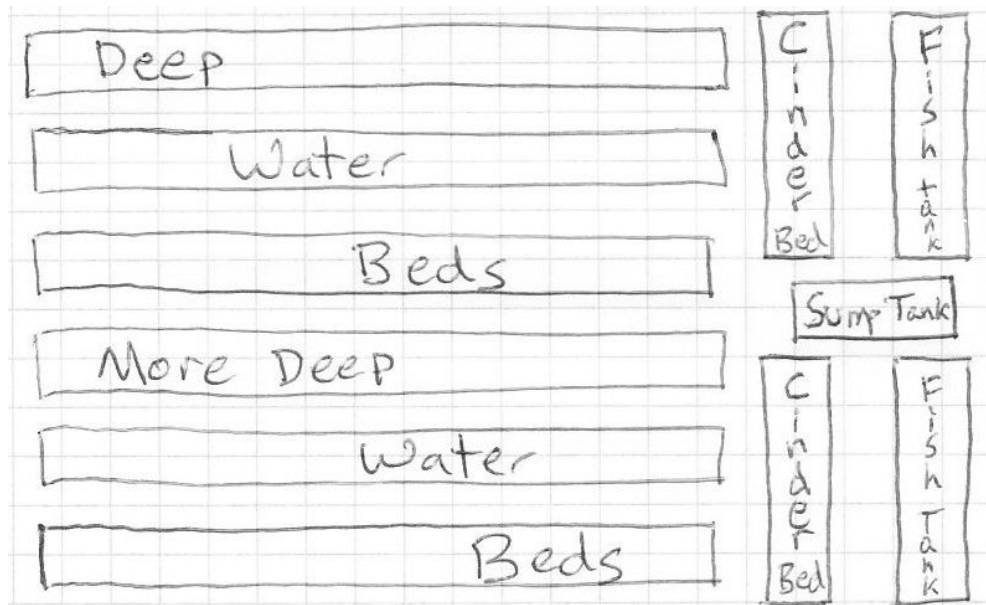 Deep
Water
Beds
More Deep
Water
Beds
Cinder Bed
Fish tank
Sump Tank
Cinder Bed
Fish Tank